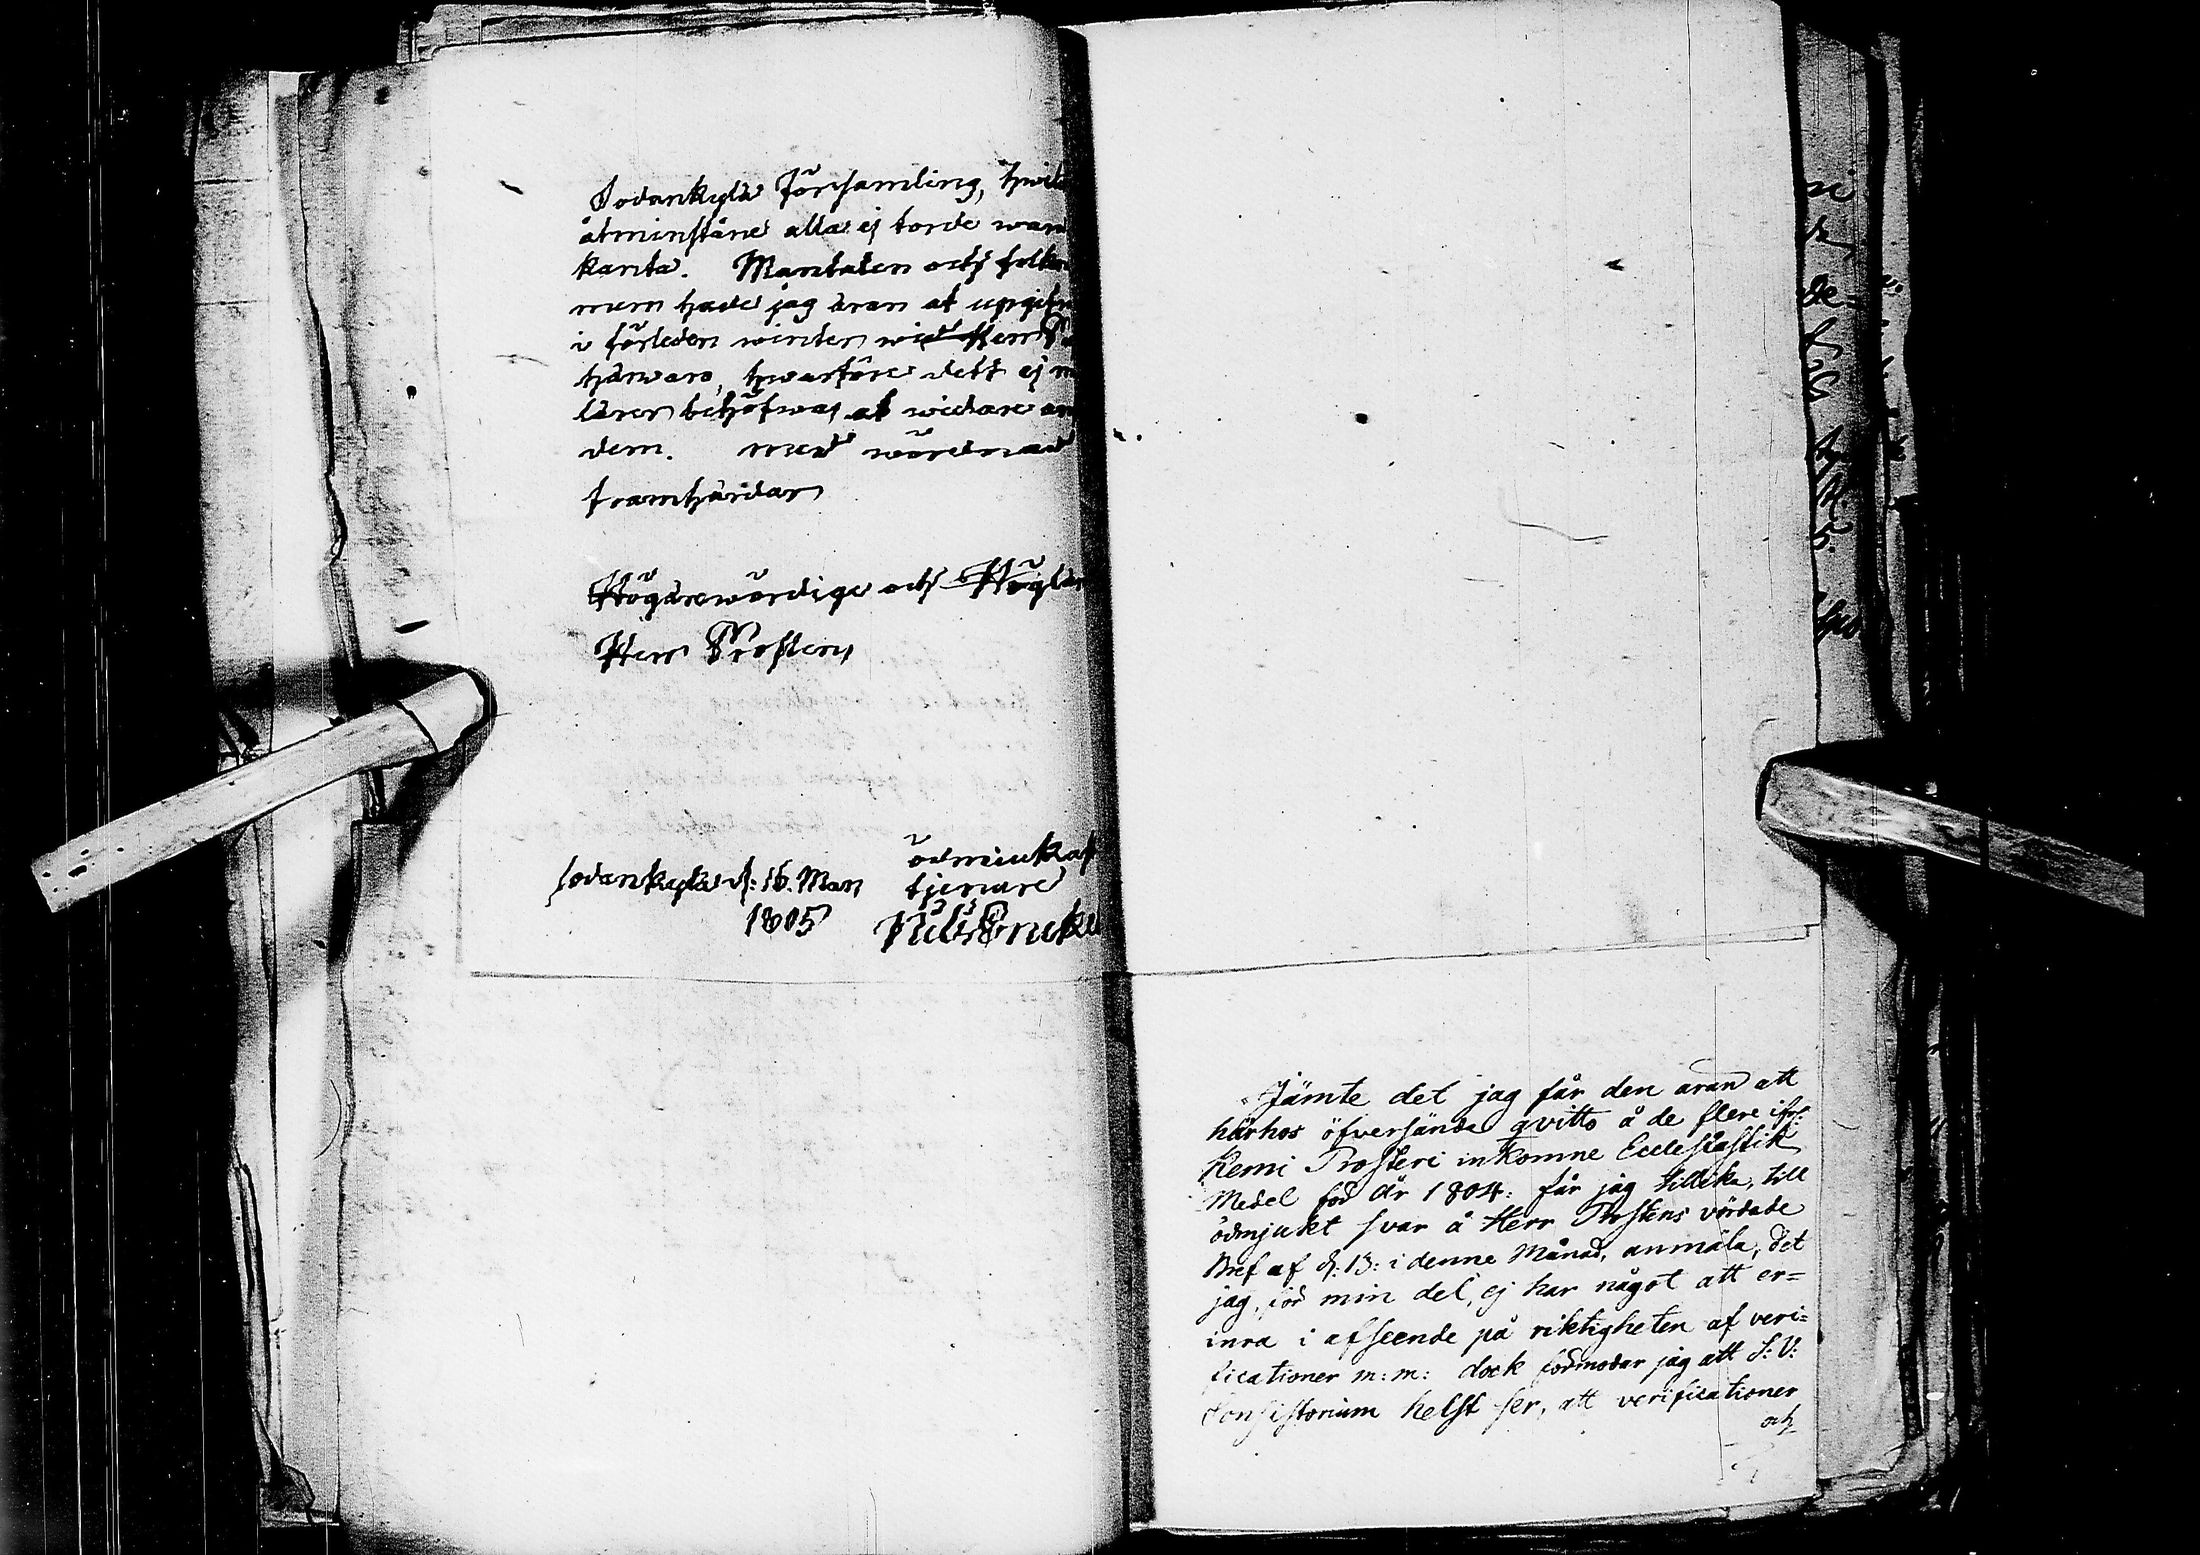 Sodankylä Församling, hwil
åtminstone alla ej torde wara
kanta. Mantalen och folkn
mern hade jag äran at upgifw
i förleden winter wid Herr P
härwaro, hwarföre dett ej m
lärer behöfwas at widare an
dem. med wördnad
framhärdar
Högärewördige och Höglär
Herr Prosten
Sodankylä d: 16. Mars
1805
ödmiukas
tjenare
Nils Fncke
Jämte det jag får den äran att
härhos öfversända qvitto å de flere ifr:
Kemi Prosteri inkomne Ecclesiastik
Medel för År 1804: får jag tillika, till
ödmjukt svar å Herr Prostens vördade
Bref af d: 13: i denne Månad, anmäla, det
jag, för min del, ej har något att er=
inra i afseende på riktigheten af veri=
ficationer m: m: dock förmodar jag att S: V:
Consistorium helst ser, att verificationer
och